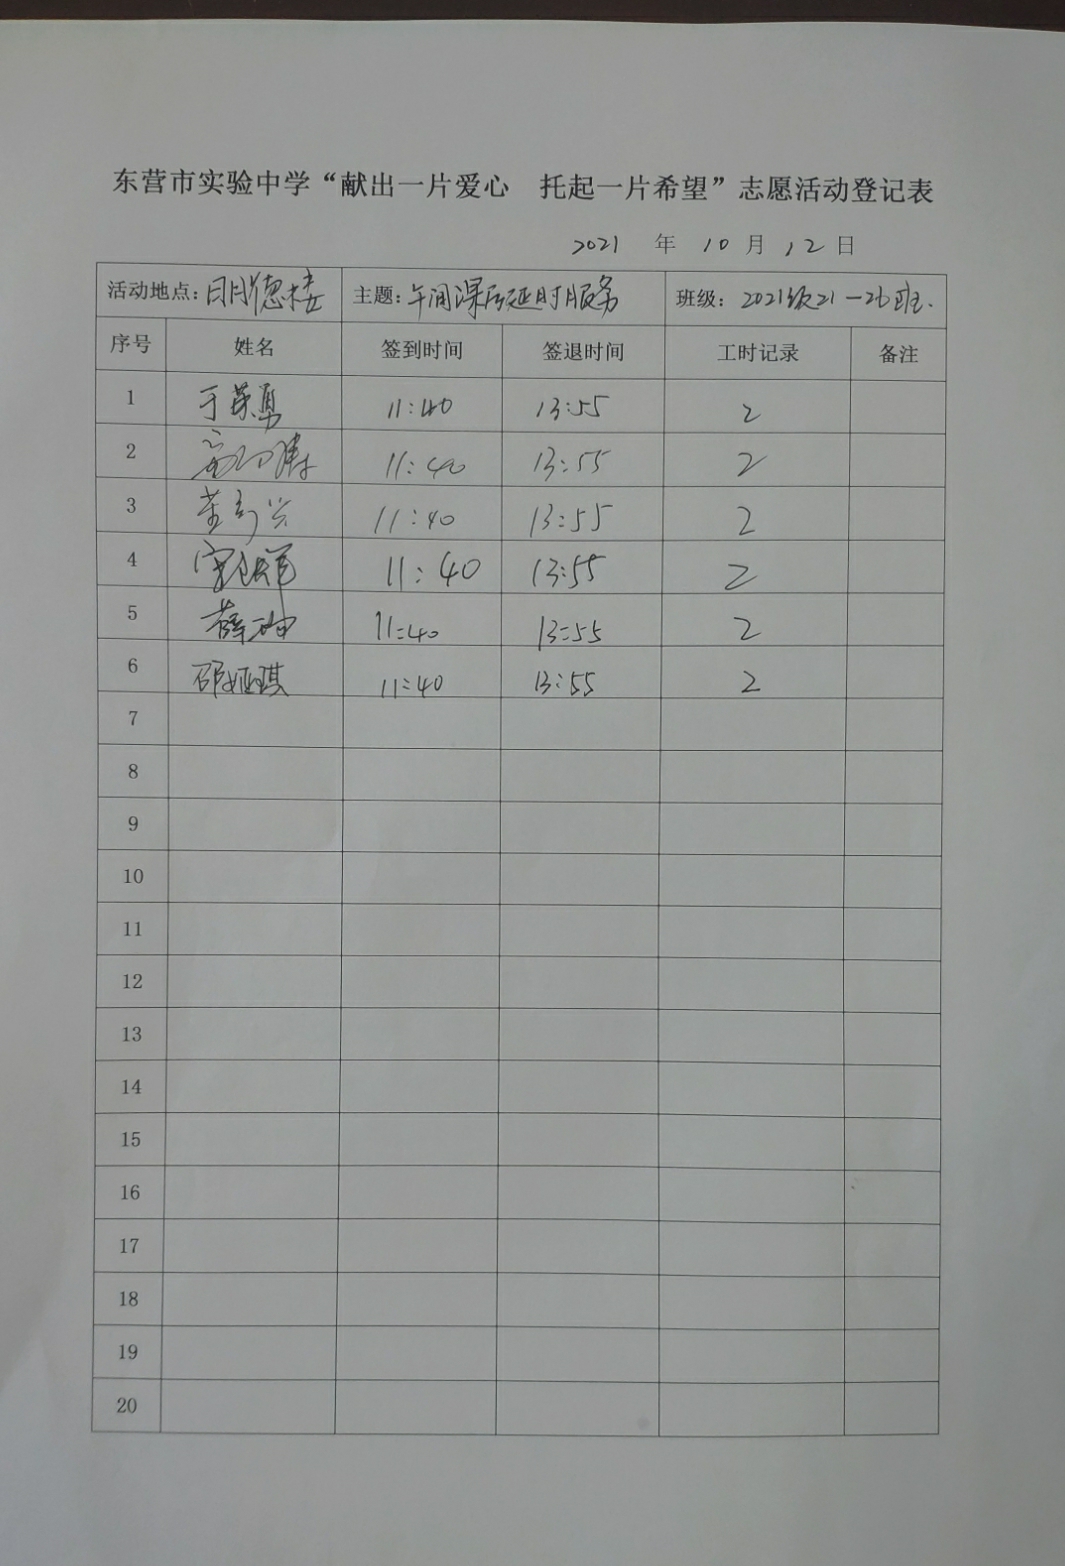 东营市实验中学“献出一片爱心 托起一片希望”志愿活动登记表
2021 年 10 月 12 日
活动地点：明德楼 主题：午间课后延时服务 班级：2021级21-26班.
序号 姓名 签到时间 签退时间 工时记录 备注
1 于荣勇 11:40 13:55 2
2 11:40 13:55 2
3 11:40 13:55 2
4 11:40 13:55 2
5 薛坤 11:40 13:55 2
6 邵娅琪 11:40 13:55 2
7
8
9
10
11
12
13
14
15
16
17
18
19
20